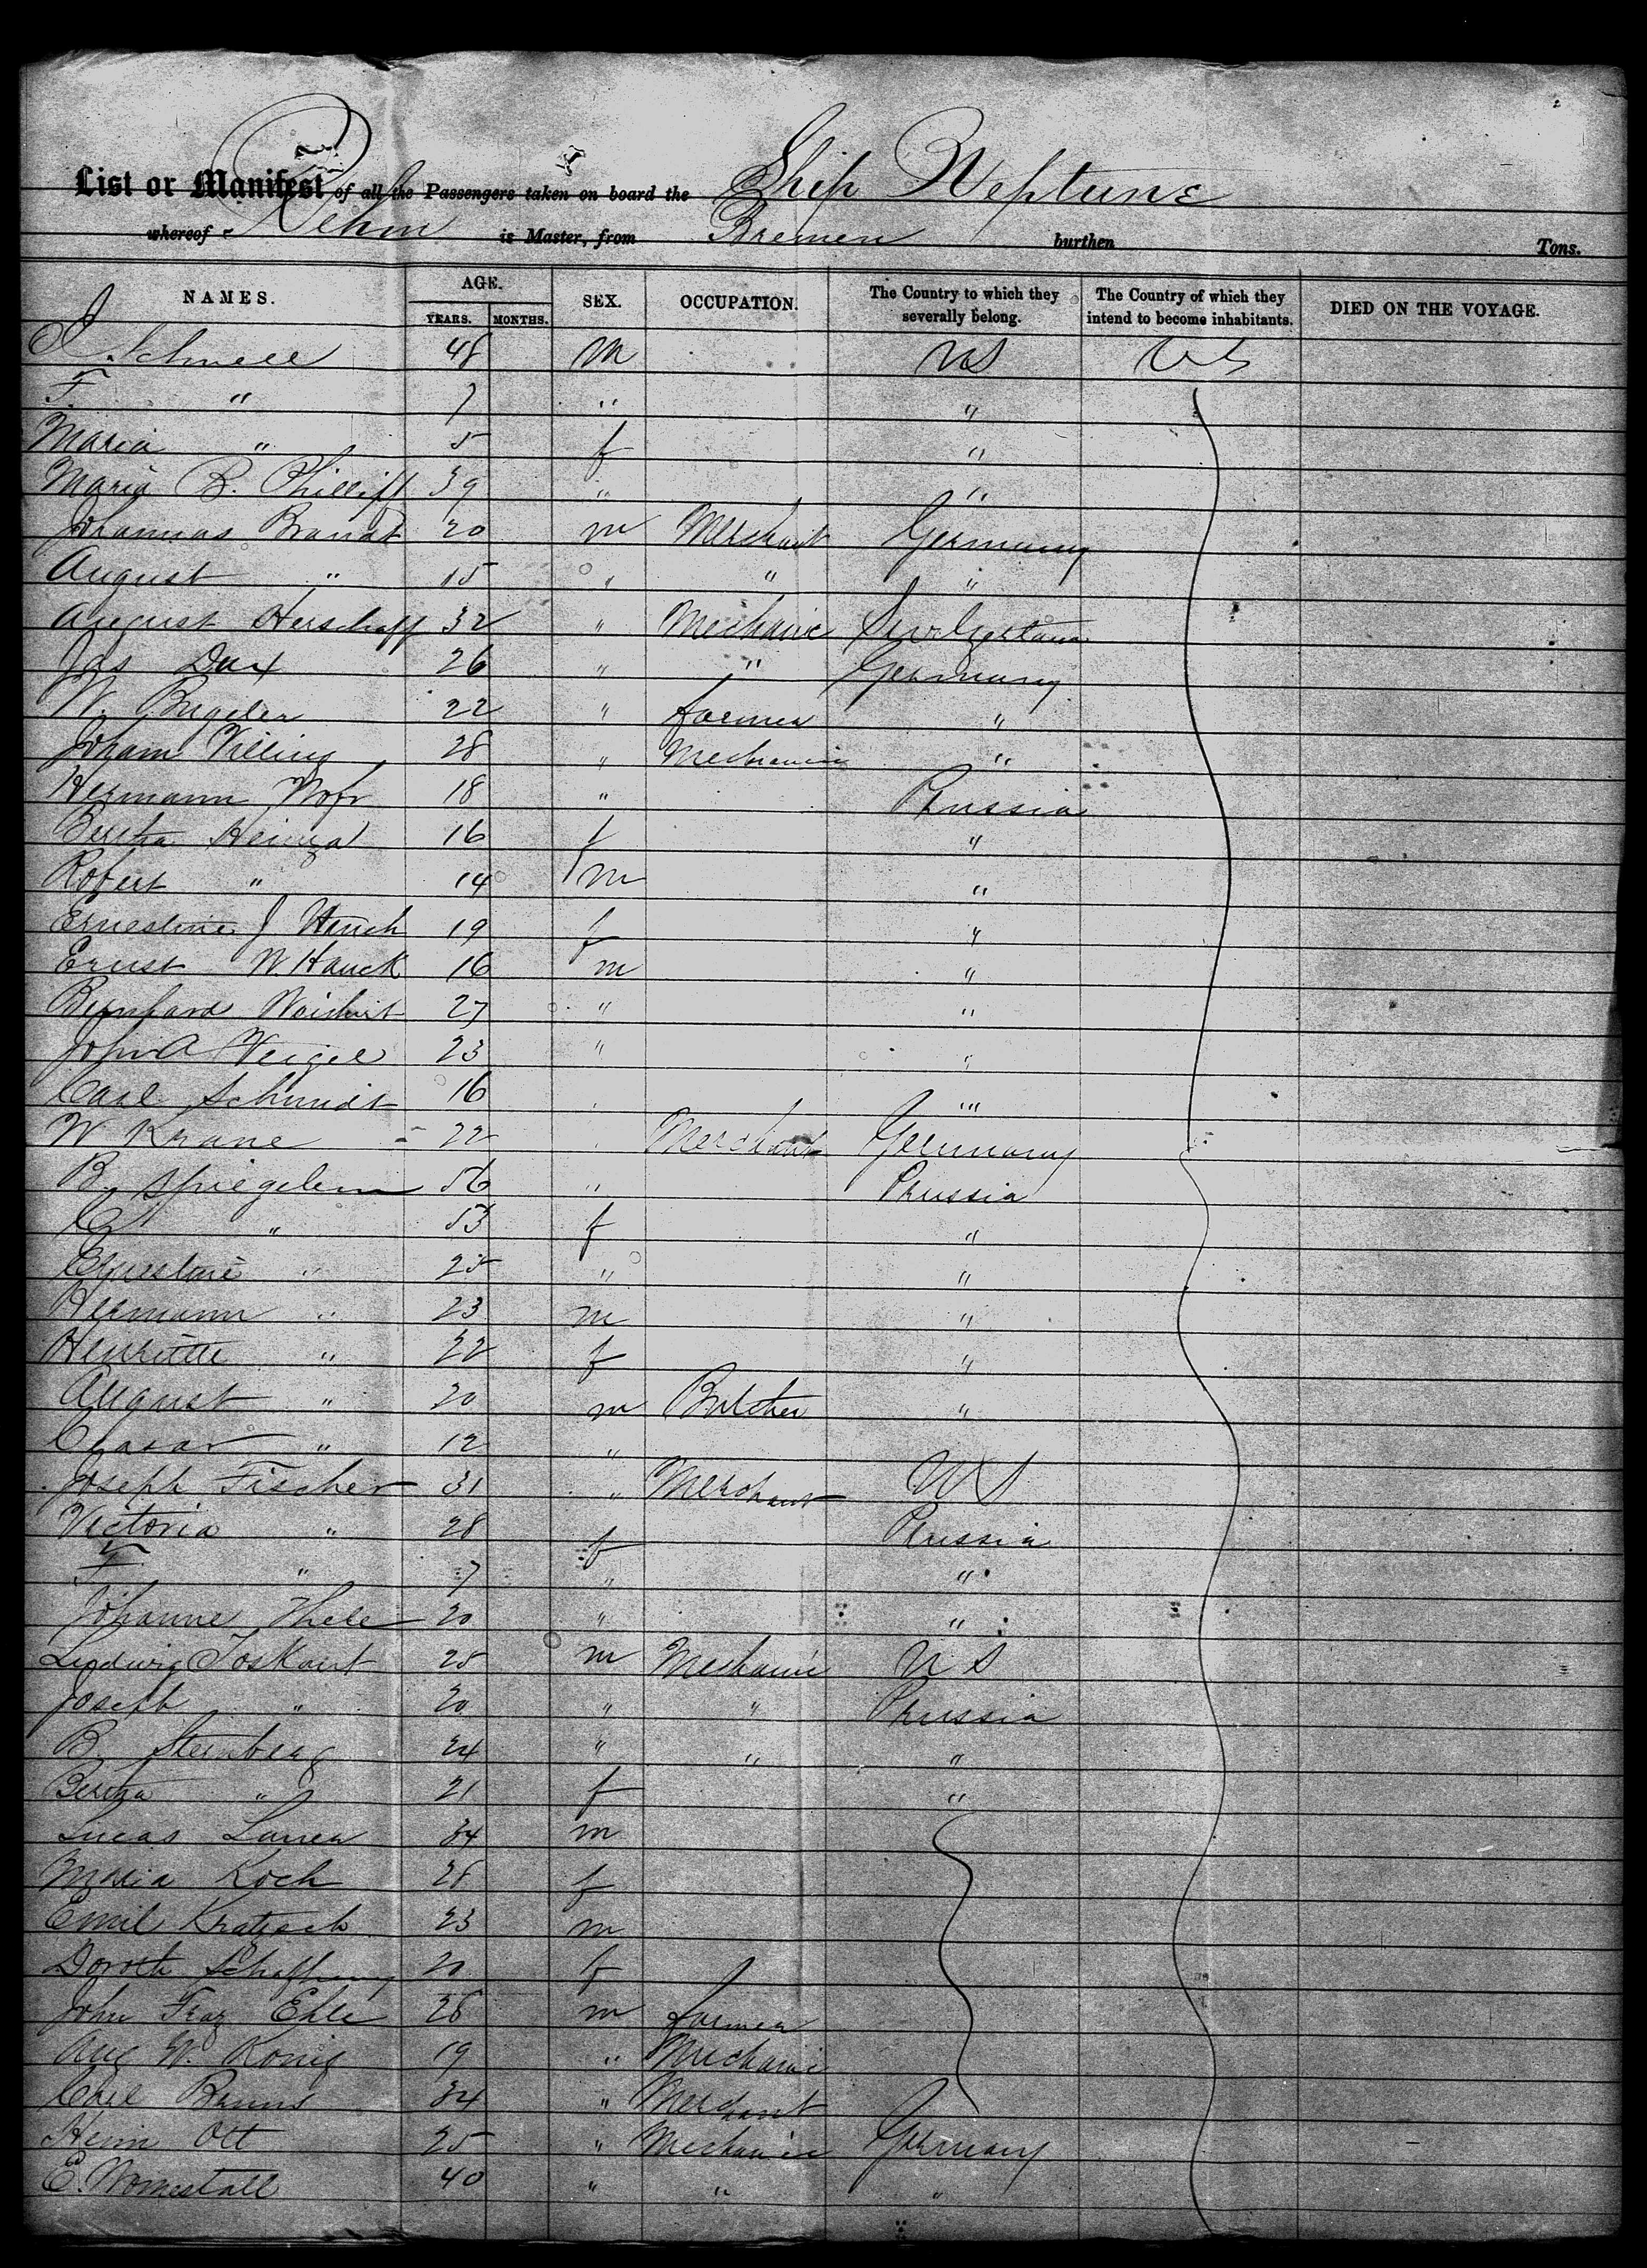 List or Manifest of all the Passengers taken on board the Ship Neptune
whereof Rehm is Master, from Bremen burthen Tons.
NAMES. AGE. YEARS. MONTHS. SEX. OCCUPATION. The Country to which they severally belong. The Country of which they intend to become inhabitants. DIED ON THE VOYAGE.
J Schnell 48 m US US
F. " 7 " "
Maria " 5 f "
Maria B. Phillipp 39 " "
Johannas Brandt 20 m Merchant Germany
August " 15 " " "
August 32 " Mechanic
Jas Dax 26 " " Germany
W. 22 " farmer "
Joham Villing 28 " Mechanic "
Hermann 18 " Prussia
Bertha 16 f "
Robert " 14 m "
Ernestine J 19 f "
Ernst W Hauck 16 m "
Bernhard 27 " "
John A Weigel 23 " "
Carl Schmidt 16 " "
W Krane 22 " Merchant Germany
B. Spiegelem 56 " Prussia
C " 53 f "
Ernestine " 25 " "
Hermann " 23 m "
Henriette " 22 f "
August " 20 m Butcher "
Casar " 12 "
Joseph Fischer 31 " Merchant US
Victoria " 28 f Prussia
F " 7 " "
Johanne Thele 20 " "
Ludwig Toskant 25 m Mechanic US
Joseph " 20 " " Prussia
B Sternberg 24 " " "
Bertha " 21 f "
Lucas 34 m
Maria Koch 28 f
Emil Kratzsch 23 m
Doroth 20 f
John Fraz Ehle 28 m farmer
Aug W. Konig 19 " Mechanic
Carl Bruns 34 " Merchant
Heinr Ott 25 " Mechanic Germany
E. 40 " " "